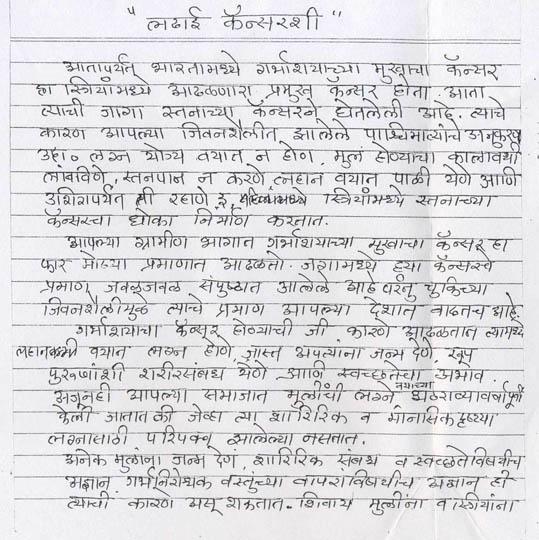 " लढाई कॅन्सरशी "
आतापर्यंत भारतामध्ये गर्भाशयाच्या मुखाचा कॅन्सर
हा स्त्रियांमध्ये आढळणारा प्रमुख कॅन्सर होता. आता
त्याची जागा स्तनाच्या कॅन्सरने घेतलेली आहे. त्याचे
कारण आपल्या जिवनशैलीत झालेले पाश्चिमात्यांचे अनुकरण
उदा० लग्न योग्य वयात न होणे, मुलं होण्याचा कालावधी
लांबविणे, स्तनपान न करणे, लहान वयात पाळी येणे आणि
उशिरापर्यंत ती रहाणे इ. स्त्रियांमध्ये स्तनाच्या
कॅन्सरचा धोका निर्माण करतात.
आपल्या ग्रामीण भागात गर्भाशयाच्या मुखाचा कॅन्सर हा
फार मोठ्या प्रमाणात आढळतो. जगामध्ये ह्या कॅन्सरचे
प्रमाण जवळजवळ संपुष्टात आलेले आहे परंतु चुकिच्या
जिवनशैलीमुळे त्याचे प्रमाण आपल्या देशात वाढतच आहे.
गर्भाशयाचा कॅन्सर होण्याची जी कारणे आढळतात त्यामध्ये
लहान वयात लग्न होणे, जास्त अपत्यांना जन्म देणे, खूप
पुरुषांशी शरीरसंबंध येणे आणि स्वच्छतेचा अभाव.
अजूनही आपल्या समाजात मुलींची लग्ने वयाच्या अठराव्या वर्षापूर्वी
केली जातात की जेव्हा त्या शारिरिक व मानसिकदृष्ट्या
लग्नासाठी परिपक्व झालेल्या नसतात.
अनेक मुलांना जन्म देणे, शारिरिक संबंध व स्वच्छतेविषयीचे
अज्ञान, गर्भनिरोधक वस्तुंच्या वापराविषयीचे अज्ञान ही
त्याची कारणे असू शकतात. शिवाय मुलींना व स्त्रीयांना